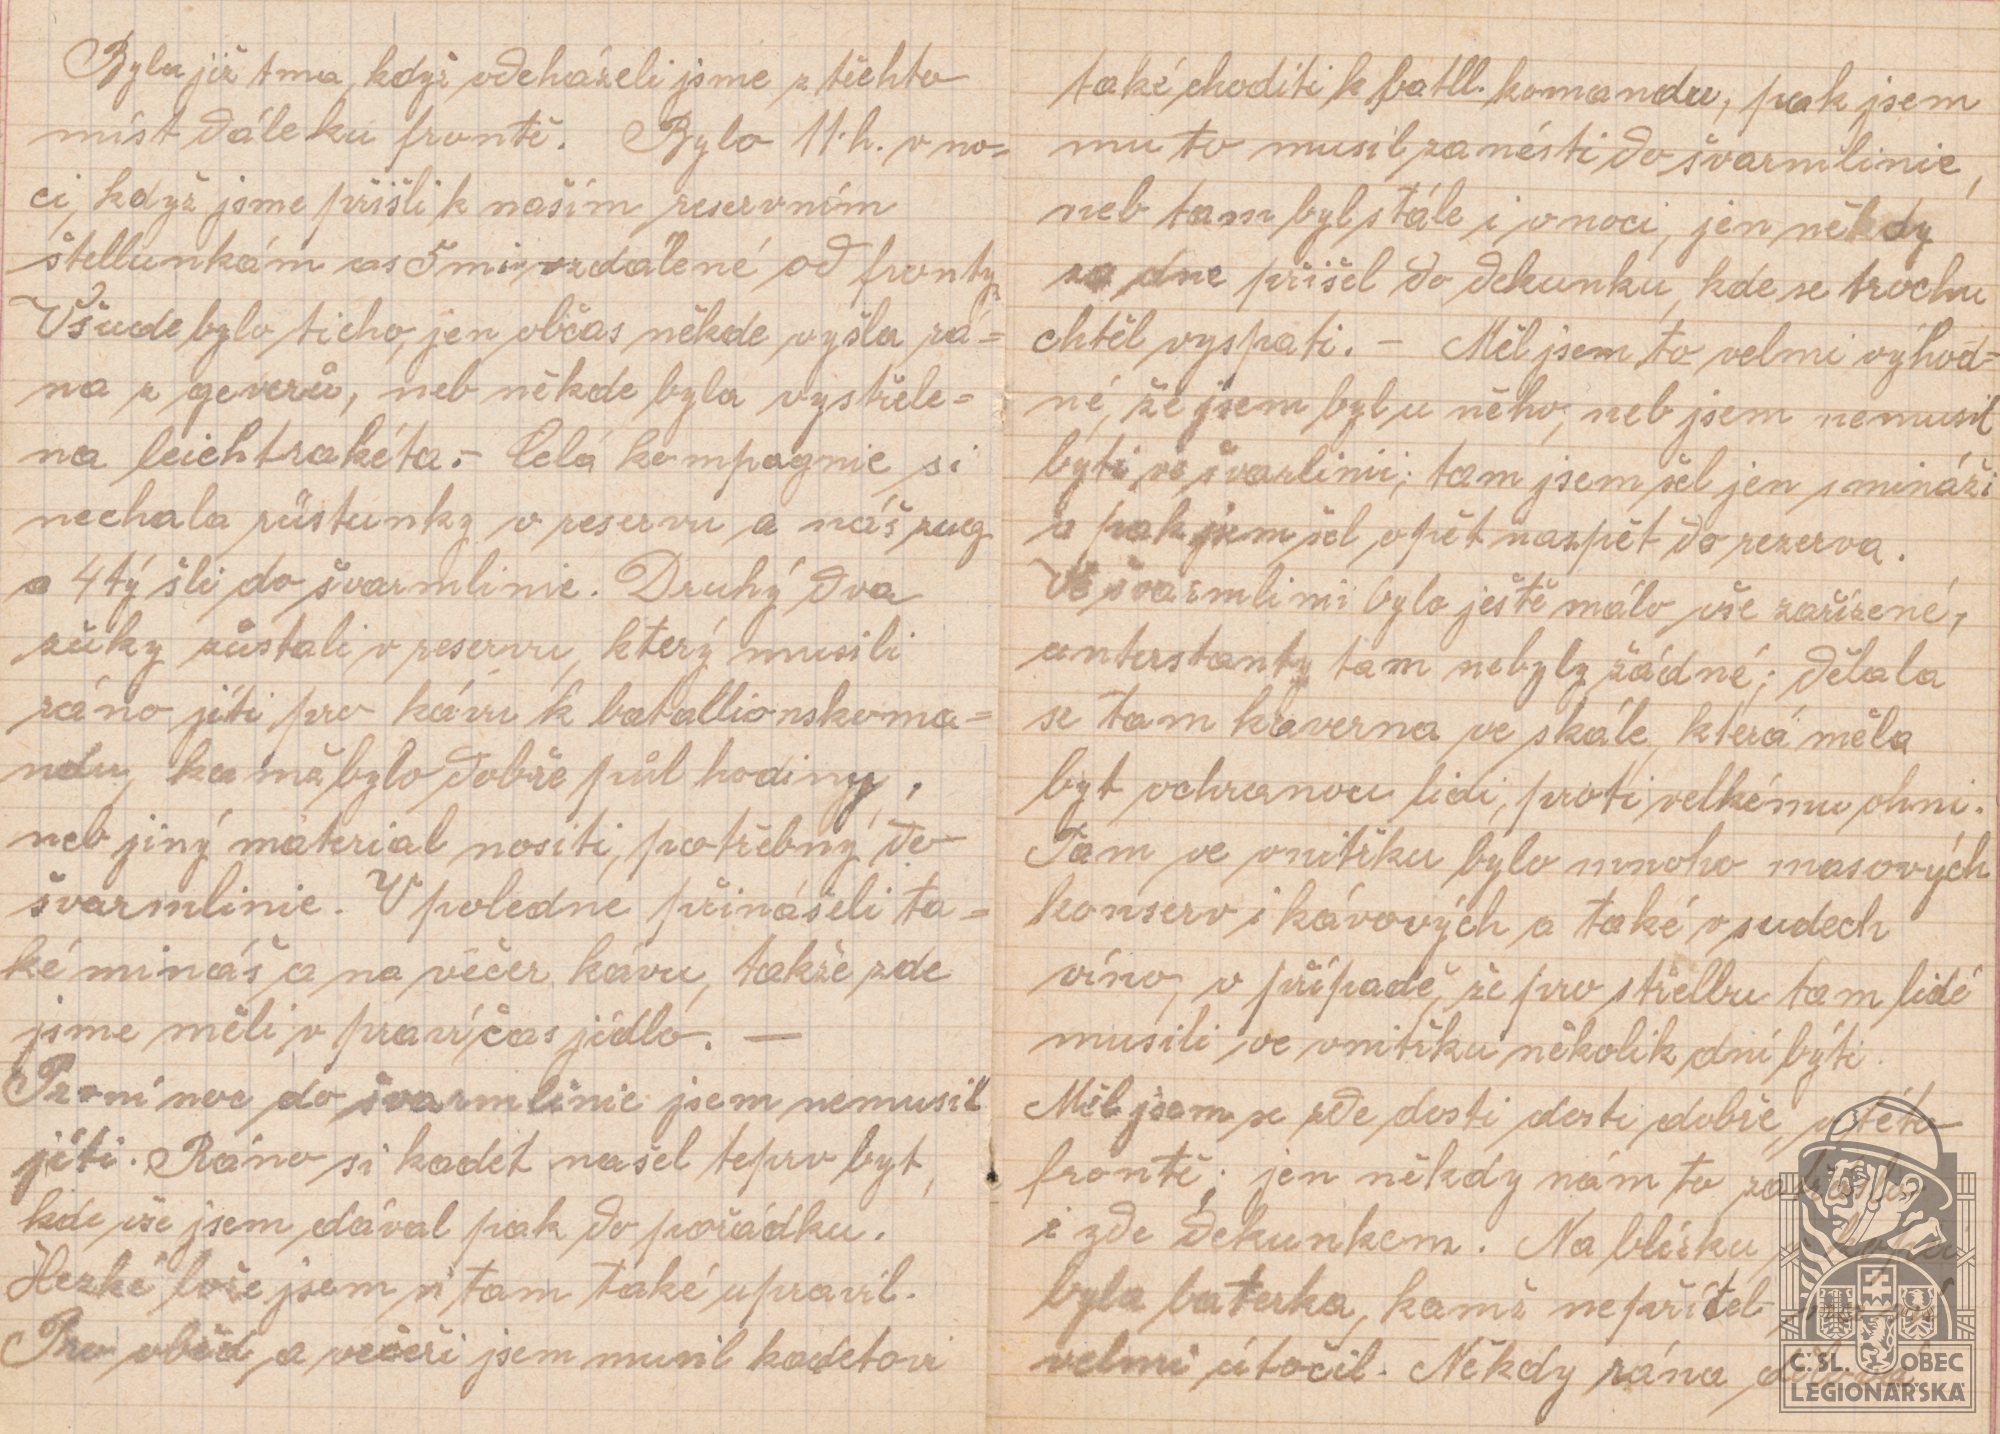 Byla již tma, když odcházeli jsme z těchto
míst dále ku frontě. Bylo 11.h. v no=
ci, když jsme přišli k našim reservním
štellunkám as 5 min vzdálené od fronty.
Všude bylo ticho, jen občas někde vyšla rá=
na z geverů, neb někde byla vystřele=
na leichtrakéta.- Celá kompagnie si
nechala rüstunky v reservu a náš zug
a 4tý šli do švarmlinie. Druhý dva
zůky zůstali v reservu, který musili
ráno jíti pro kávu k batallionskoma=
ndu, kamž bylo dobře půl hodiny,
neb jiný material nositi, potřebný do
švarmlinie. V poledne přinášeli ta=
ké mináš a na večer kávu, takže zde
jsme měli v pravíčas jídlo. —
První noc do švarmlinie jsem nemusil
jíti. Ráno si kadet našel teprv byt,
kde vše jsem dával pak do pořádku.
Hezké lože jsem si tam také upravil.
Pro oběd a večeři jsem musil kadetovi
také choditi k batll. komandu, pak jsem
mu to musil zanésti do švarmlinie,
neb tam byl stále i v noci, jen někdy
za dne přišel do dekunku, kde se trochu
chtěl vyspati. - Měl jsem to velmi výhod=
né, že jsem byl u něho, neb jsem nemusil
byti ve švarlinii; tam jsem šel jen s mináži
a pak jsem šel opět nazpět do rezerva.
Ve švarmlinii bylo ještě málo vše zařízené,
unterstanty tam nebyly žádné; dělala
se tam kaverna ve skále, která měla
byt ochranou lidi, proti velkému ohni.
Tam ve vnitřku bylo mnoho masových
konserv i kávových a také v sudech
víno, v případě, že pro střelbu tam lidé
musili ve vnitřku několik dní býti.
Měl jsem se zde dosti dosti dobře, v této
frontě; jen někdy nám to
i zde dekunkem. Na blízku
byla baterka, kamž nepřítel
velmi útočil. Někdy rána
Č. SL. OBEC
LEGIONÁŘSKÁ